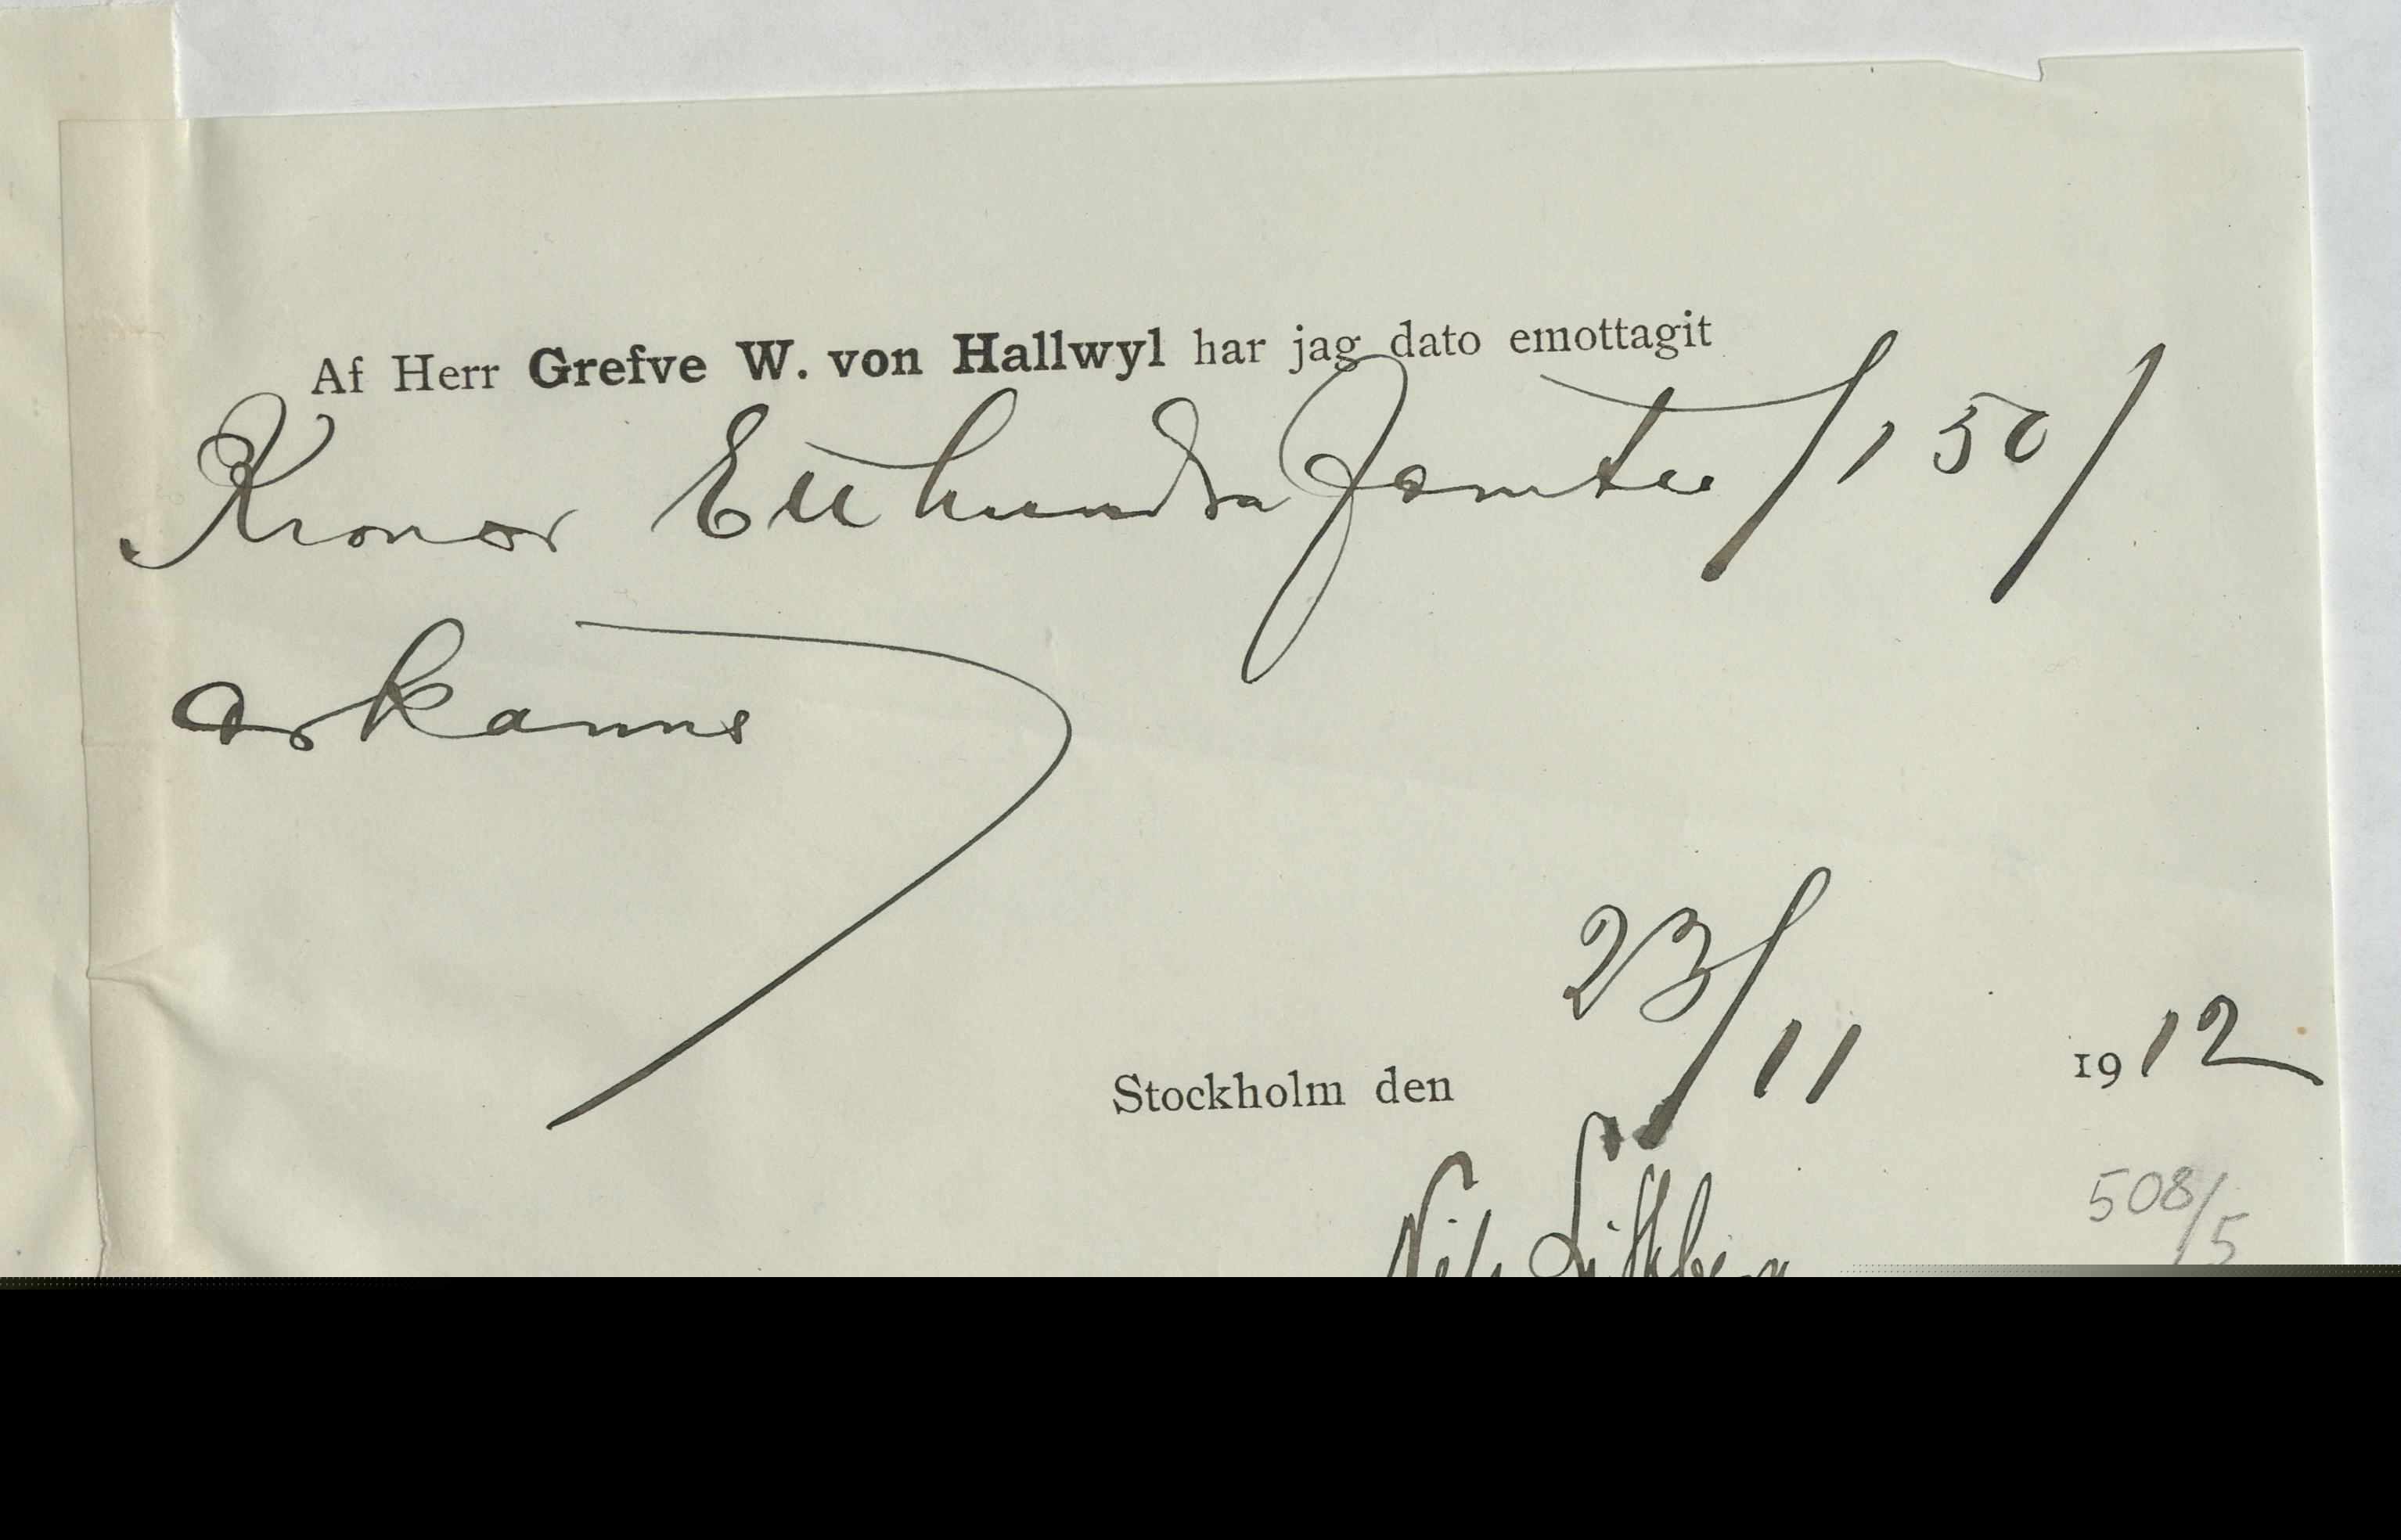 Af Herr Grefve W. von Hallwyl har jag dato emottagit
Kronor Etthundra Femtio /150/
erkännes
Stockholm den 23/11 1912
Nils Lithberg
508/5